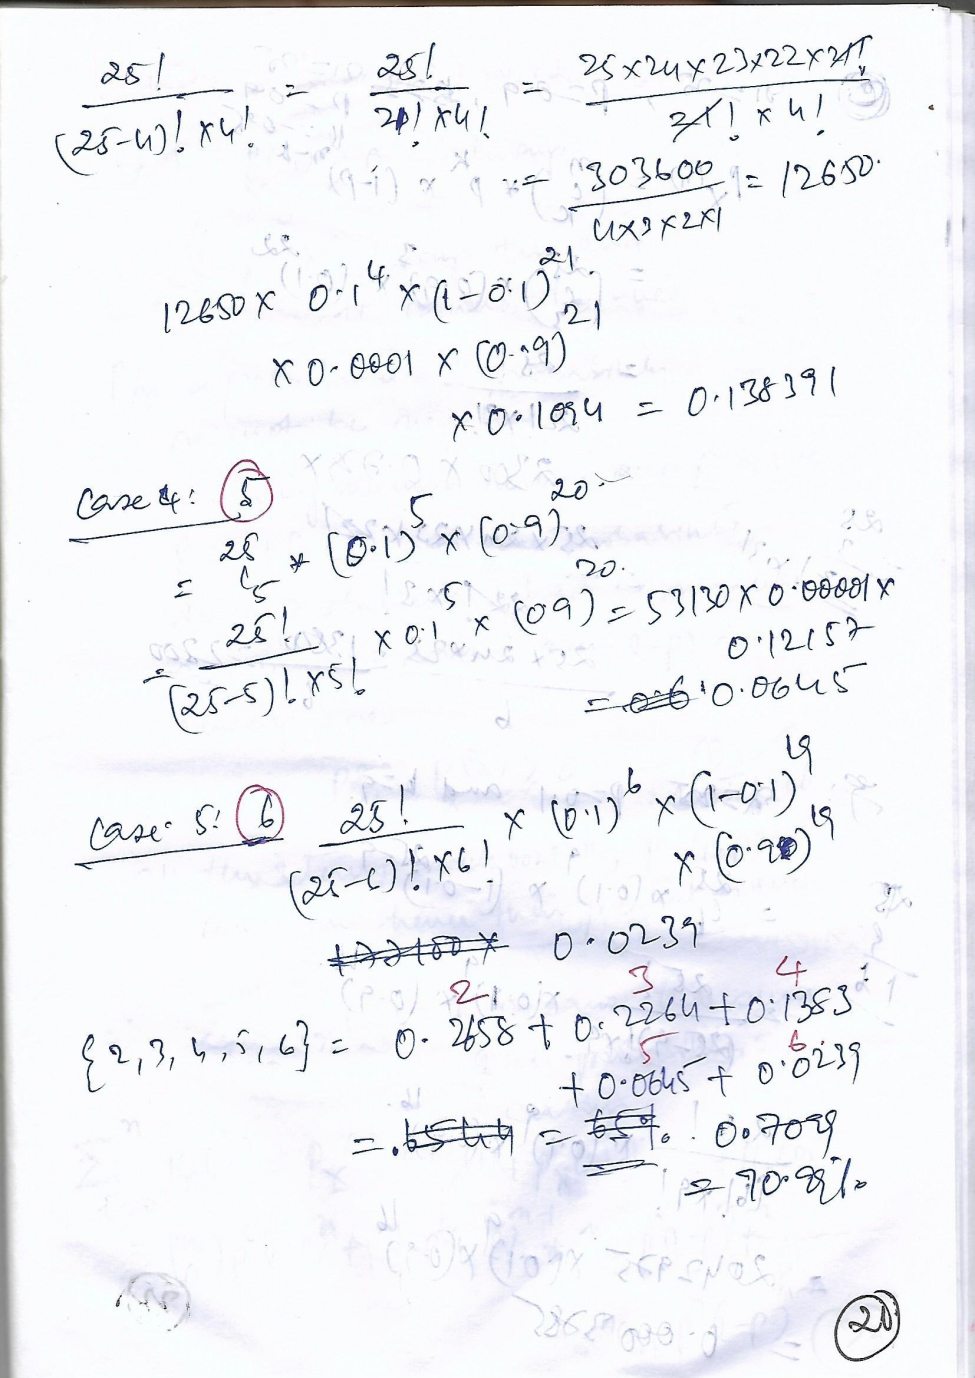 25! / (25-4)! x 4! = 25! / 21! x 4! = 25 x 24 x 23 x 22 x 21! / 21! x 4!
= 303600 / 4x3x2x1 = 12650.
12650 x 0.1^4 x (1-0.1)^21
x 0.0001 x (0.9)^21
x 0.1094 = 0.138391
Case 4: 5
= 25C5 * (0.1)^5 x (0.9)^20
= 25! / (25-5)! x 5! x 0.1^5 x (0.9)^20 = 53130 x 0.00001 x
0.12157
= 0.0645
Case 5: 6 25! / (25-6)! x 6! x (0.1)^6 x (1-0.1)^19
x (0.9)^19
0.0239
2 3 4
{2,3,4,5,6} = 0.2658 + 0.2264 + 0.1383
5 6
+ 0.0645 + 0.0239
= .6544 = 65%. 0.7099
= 70.99%.
20